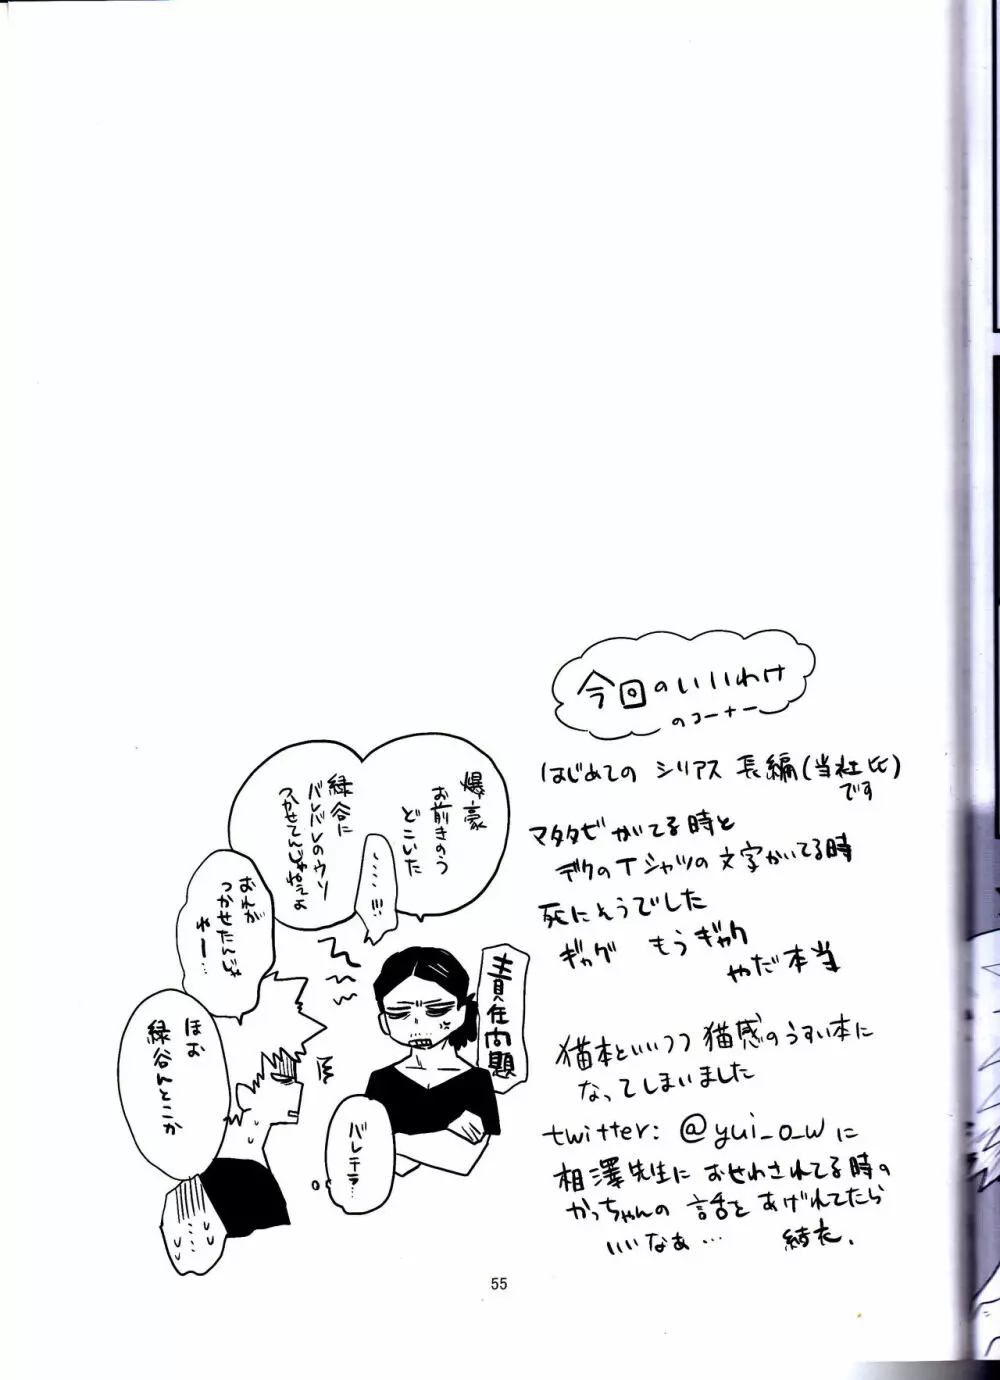 今回のいいわけ
のコーナー
はじめての シリアス 長編(当社比)
です
マタタビ がてる時と
デクのTシャツの文字かいてる時
死にそうでした
ギャグ もうギャグ
やだ本当
猫本といいつつ 猫感のうすい本に
なってしまいました
twitter: @yui_o_wに
相澤先生に おせわされてる時の
かっちゃんの 話を あげれてたら
いいなぁ… 結衣.
爆豪
お前きのう
どこいた
……!!!
緑谷に
バレバレのウソ
つかせてんじゃねえよ
おれが
つかせたんじゃ
ねー…
責任問題
ほお
緑谷んとこか
バレテラ…
……
55